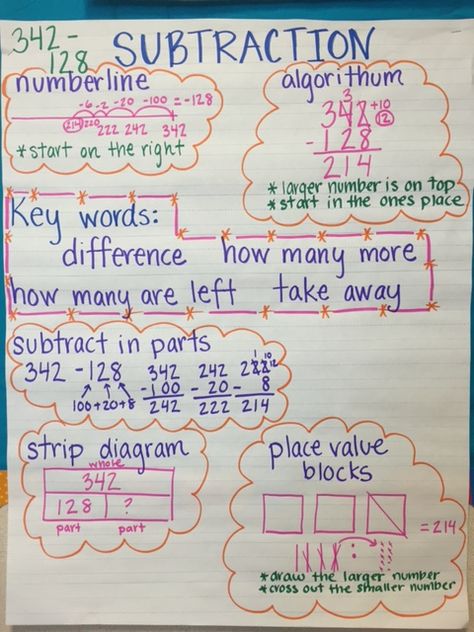 342 -
128
SUBTRACTION
numberline
-6 -2 -20 -100 = -128
214 220 222 242 342
*start on the right
algorithum
3
342 +10
12
- 128
214
*larger number is on top
*start in the ones place
Key words:
difference how many more
how many are left take away
subtract in parts
342 - 128
100+20+8
342
-100
242
242
- 20
222
1 10
222 12
- 8
214
strip diagram
whole
342
128 ?
part part
place value
blocks
= 214
*draw the larger number
*cross out the smaller number